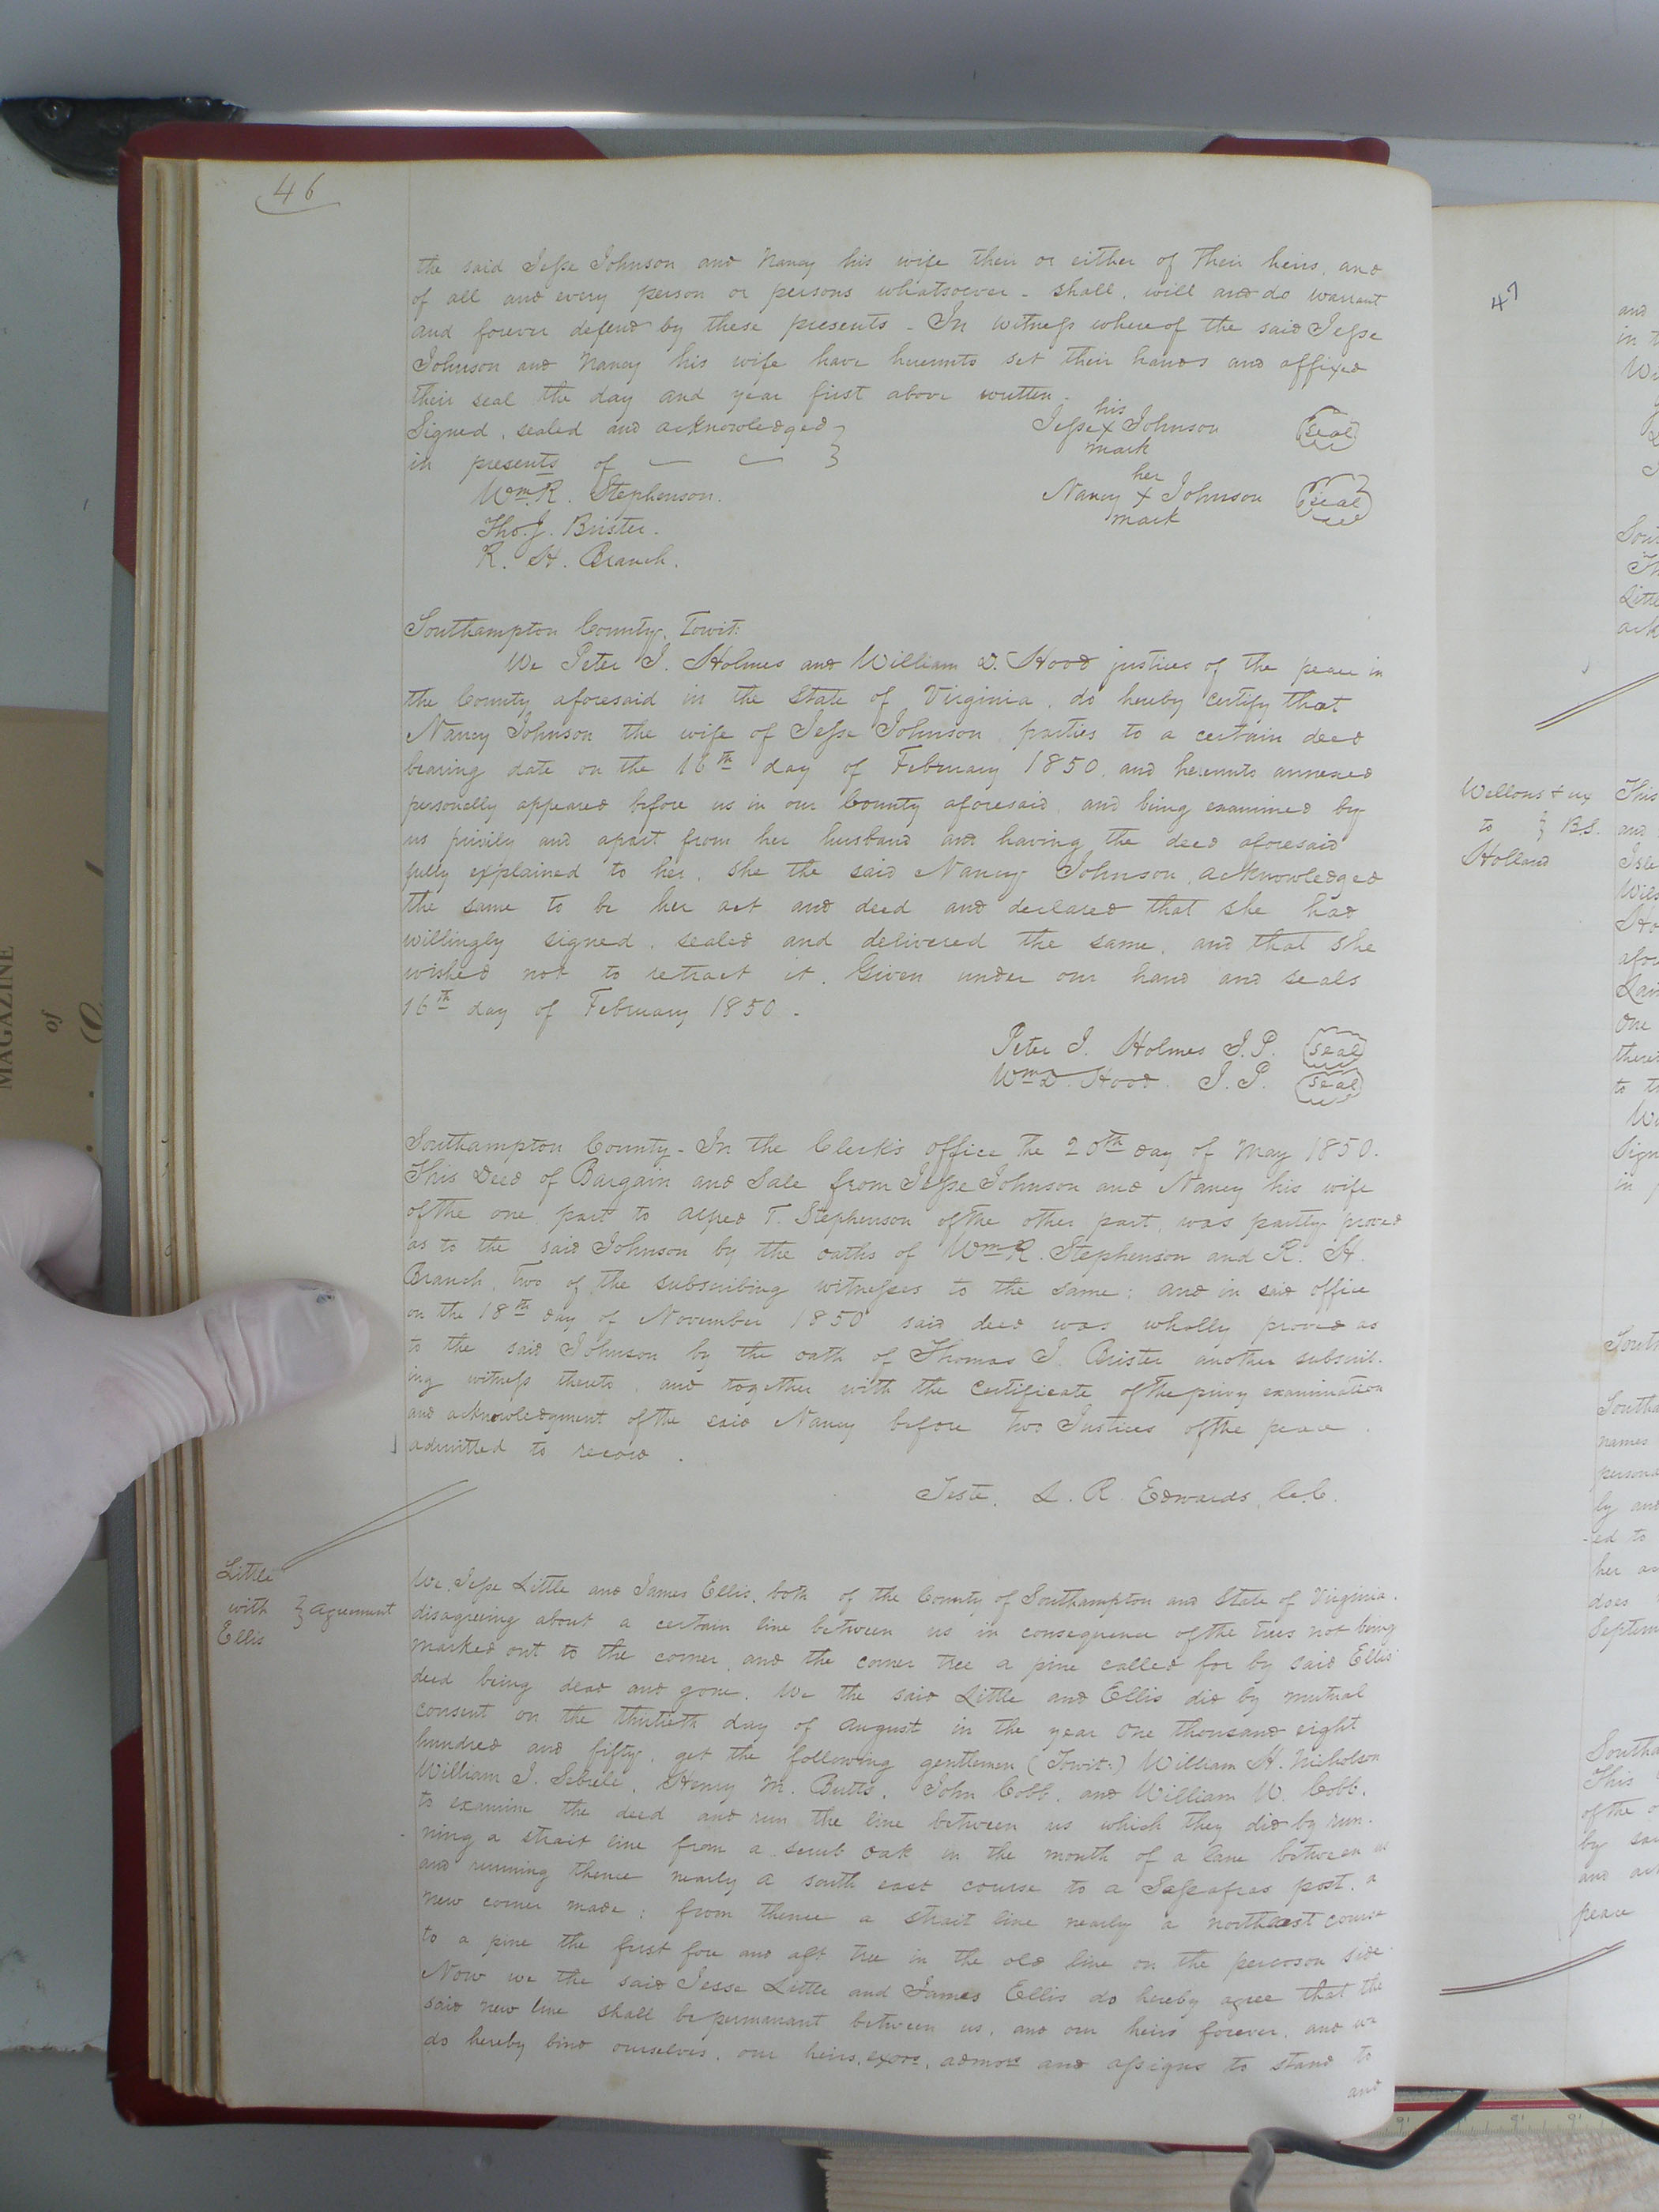 46
the said Jesse Johnson and Nancy his wife their or either of their heirs, and
of all and every person or persons whatsoever - shall, will and do warrant
and forever defend by these presents - In witness whereof the said Jesse
Johnson and Nancy his wife have hereunto set their hands and affixed
their seal the day and year first above written -
Signed, sealed and acknowledged }
in presents of
his
Jesse x Johnson seal
mark
Wm R. Stephenson.
her
Nancy x Johnson seal
mark
Tho. J. Brister.
R. H. Branch.
Southampton County, Towit:
We Peter J. Holmes and William D. Hood justices of the peace in
the County aforesaid in the State of Virginia, do hereby certify that
Nancy Johnson the wife of Jesse Johnson parties to a certain deed
bearing date on the 16th day of February 1850, and hereunto annexed
personally appeared before us in our County aforesaid, and being examined by
us privily and apart from her husband and having the deed aforesaid
fully explained to her, she the said Nancy Johnson, acknowledged
the same to be her act and deed and declared that she had
willingly signed, sealed and delivered the same, and that she
wished not to retract it. Given under our hand and seals
16th day of February 1850 -
Peter J. Holmes J.P. seal
Wm D. Hood. J.P. seal
Southampton County - In the Clerk's office the 20th day of May 1850.
This Deed of Bargain and Sale from Jesse Johnson and Nancy his wife
of the one part to Alfred T. Stephenson of the other part, was partly proved
as to the said Johnson by the oaths of Wm R. Stephenson and R. H.
Branch, two of the subscribing witnesses to the same; and in said office
on the 18th day of November 1850 said deed was wholly proved as
to the said Johnson by the oath of Thomas J. Brister another subscrib-
ing witness thereto, and together with the certificate of the privy examination
and acknowledgment of the said Nancy before two Justices of the peace.
admitted to record.
Teste. L. R. Edwards, C.C.
Little
with } Agreement
Ellis
We, Jesse Little and James Ellis, both of the County of Southampton and State of Virginia.
disagreeing about a certain line between us in consequence of the trees not being
marked out to the corner, and the corner tree a pine called for by said Ellis'
deed being dead and gone. We the said Little and Ellis did by mutual
consent on the thirtieth day of August in the year One thousand eight
hundred and fifty, get the following gentlemen (Towit:) William H. Nicholson
William J. Sebrell, Henry M. Butts, John Cobb, and William W. Cobb.
to examine the deed and run the line between us which they did by run-
ning a strait line from a scrub oak in the mouth of a lane between us
and running thence nearly a south east course to a Sassafras post, a
new corner made; from thence a strait line nearly a northeast course
to a pine the first fore and aft tree in the old line on the pocoson side
Now we the said Jesse Little and James Ellis do hereby agree that the
said new line shall be permanant between us, and our heirs forever, and we
do hereby bind ourselves, our heirs, exors, admors and assigns to stand to
and
47
Wellons & ux
to } B.S.
Holland
MAGAZINE
of